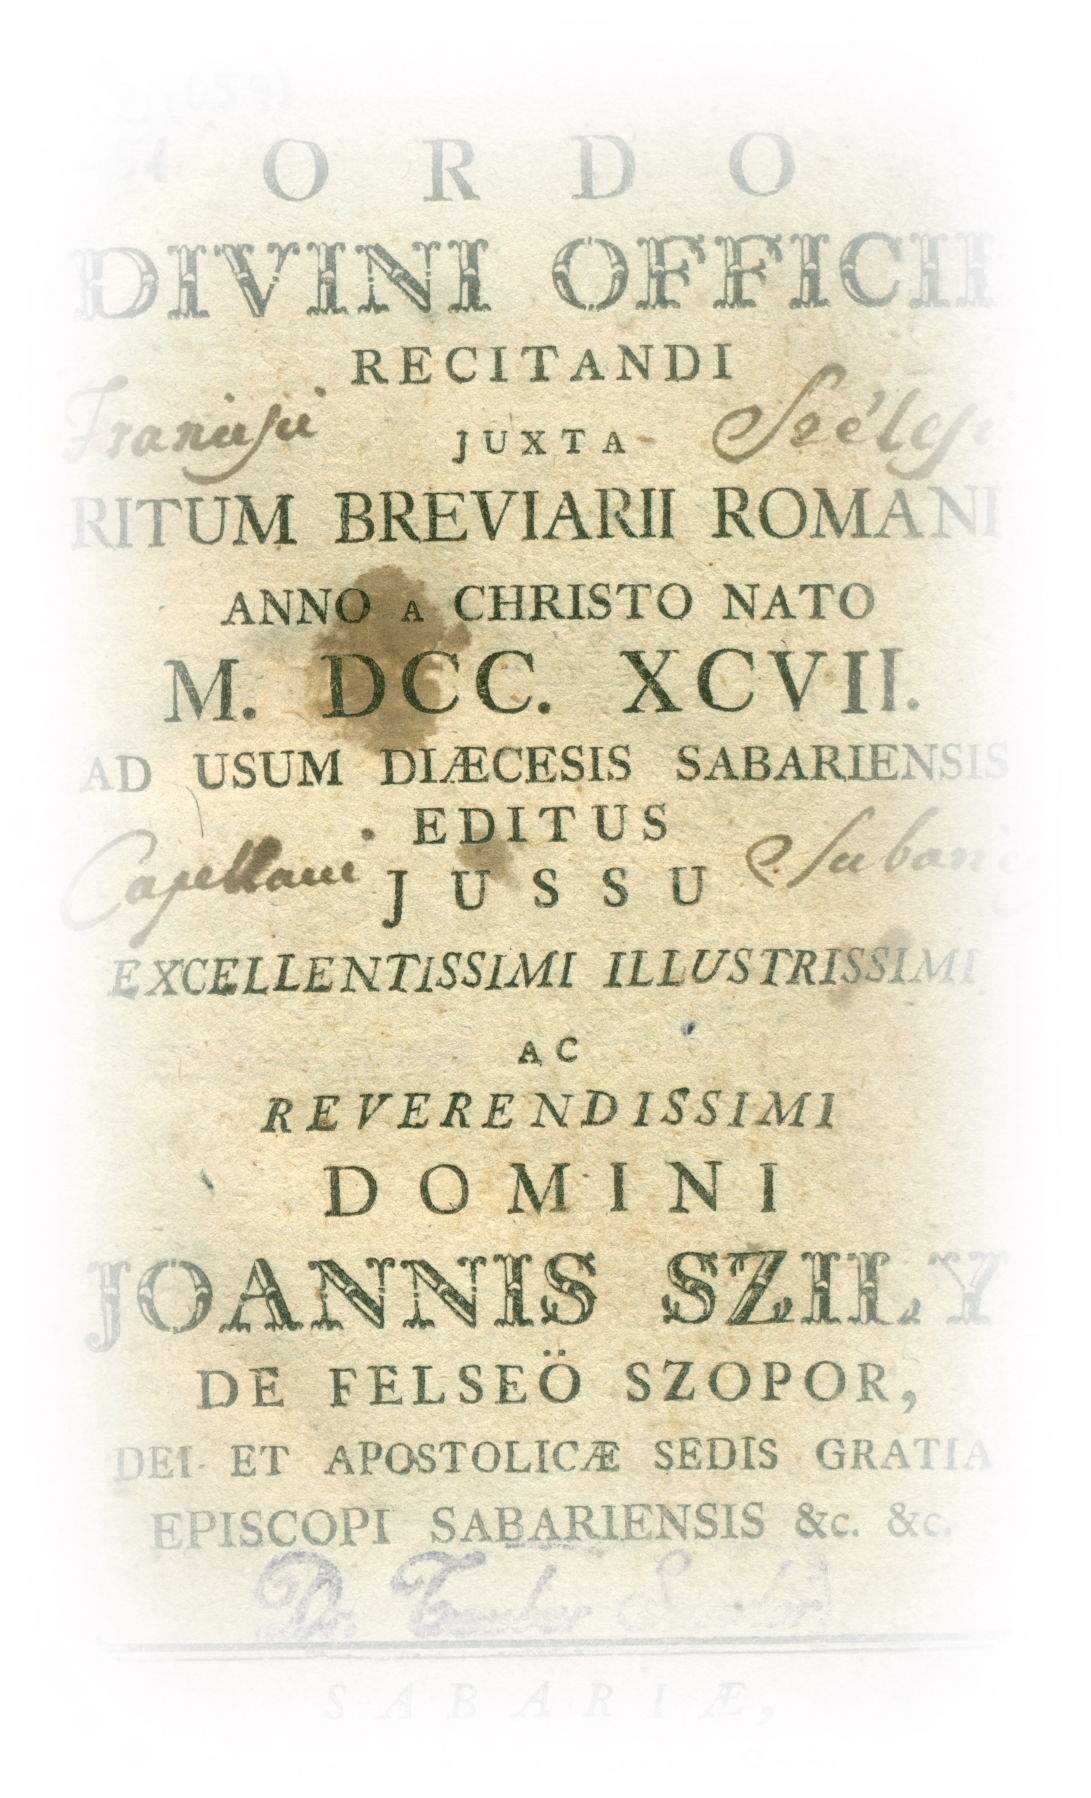 ORDO
DIVINI OFFICII
RECITANDI
Francisci Szélesi
JUXTA
RITUM BREVIARII ROMANI
ANNO A CHRISTO NATO
M. DCC. XCVII.
AD USUM DIÆCESIS SABARIENSIS
EDITUS
Capellani
JUSSU
EXCELLENTISSIMI ILLUSTRISSIMI
AC
REVERENDISSIMI
DOMINI
JOANNIS SZILY
DE FELSEÖ SZOPOR,
DEI ET APOSTOLICÆ SEDIS GRATIA
EPISCOPI SABARIENSIS &c. &c.
Dr.
SABARIÆ,